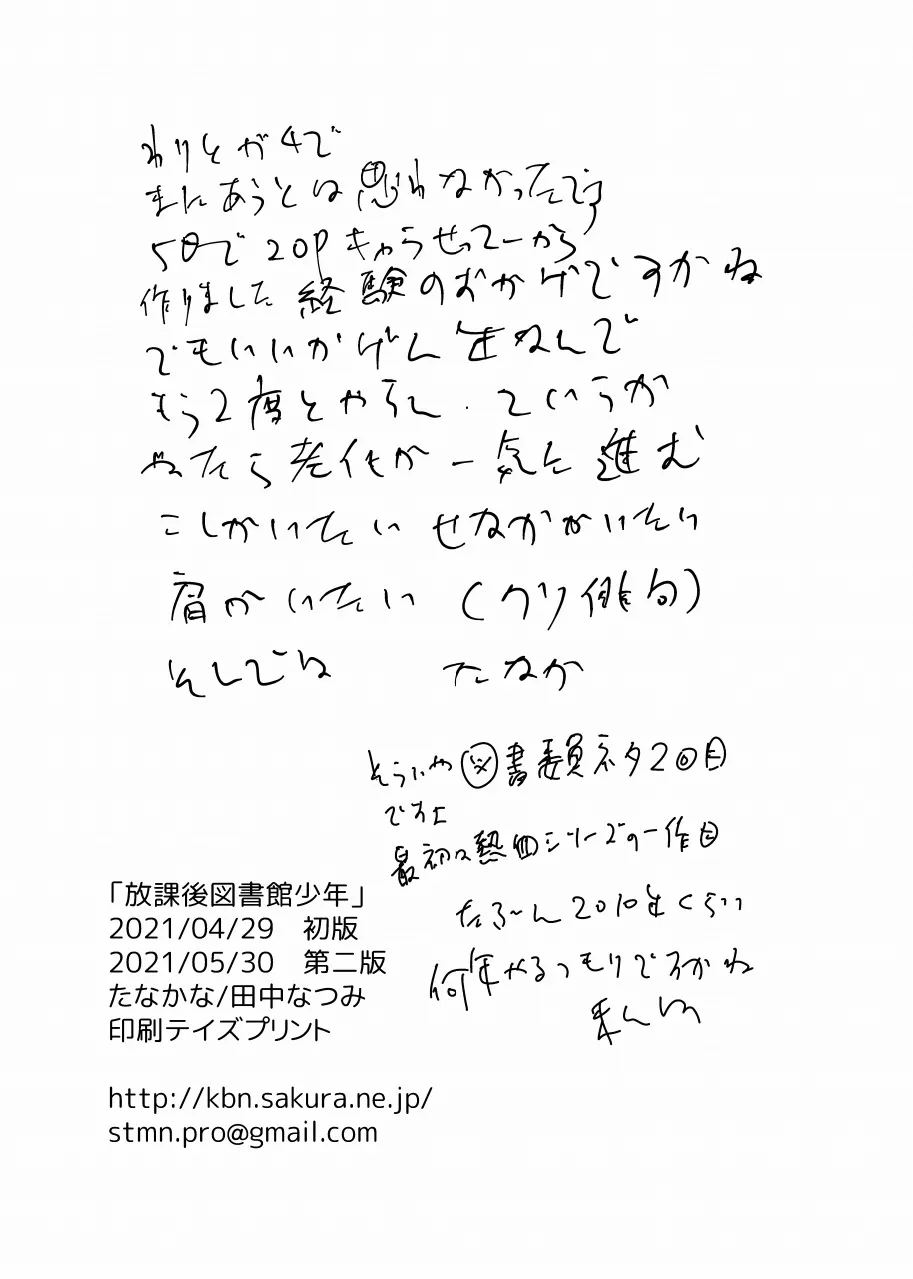 わりとガチで
まにあうとは思わなかったです
5日で20Pキャラせってーから
作りました経験のおかげですかね
でもいいかげん年なんで
もう2度とやらん.ていうか
やたら老化が一気に進む
こしがいたい せなかがいたい
肩がいたい (クソ俳句)
そしでは たなか
そういや図書委員ネタ2回目
ですよ
最初は熱血シリーズの一作目
たぶーん2010年くらい
何年やるつもりですかね
「放課後図書館少年」
2021/04/29 初版
2021/05/30 第二版
たなかな/田中なつみ
印刷テイズプリント
http://kbn.sakura.ne.jp/
stmn.pro@gmail.com